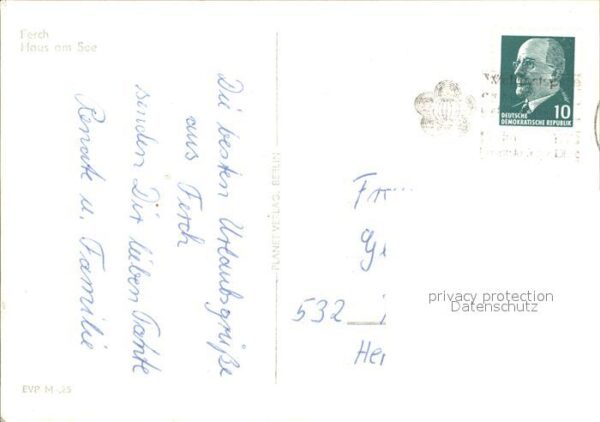 Ferch
Haus am See
Die besten Urlaubsgrüße
aus Ferch
senden Dir lieben Tante
Renate u. Familie
EVP M -,25
PLANET-VERLAG, BERLIN
10
DEUTSCHE
DEMOKRATISCHE REPUBLIK
532
privacy protection
Datenschutz